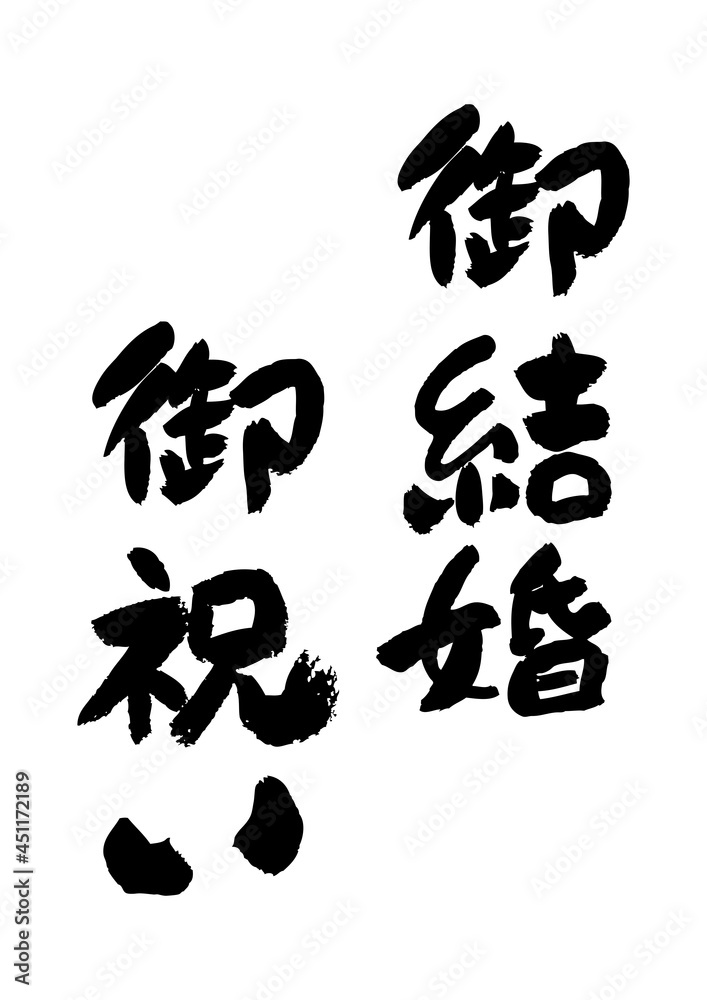 御結婚
御祝い
Adobe Stock | #451172189